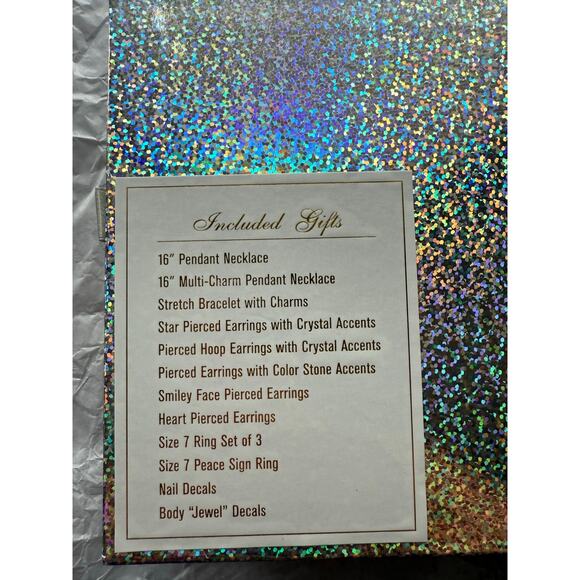 Included Gifts
16" Pendant Necklace
16" Multi-Charm Pendant Necklace
Stretch Bracelet with Charms
Star Pierced Earrings with Crystal Accents
Pierced Hoop Earrings with Crystal Accents
Pierced Earrings with Color Stone Accents
Smiley Face Pierced Earrings
Heart Pierced Earrings
Size 7 Ring Set of 3
Size 7 Peace Sign Ring
Nail Decals
Body "Jewel" Decals